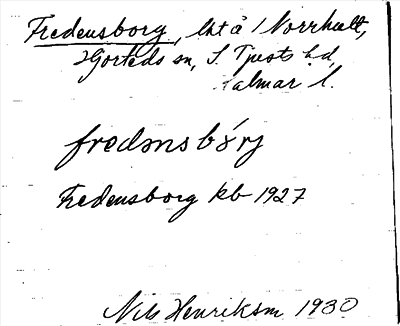 Fredensborg, lht å 1 Norrhult,
Hjorteds sn, S. Tjusts hd,
Kalmar l.
fredənsbórj
Fredensborg kb 1927
Nils Henriksm 1930